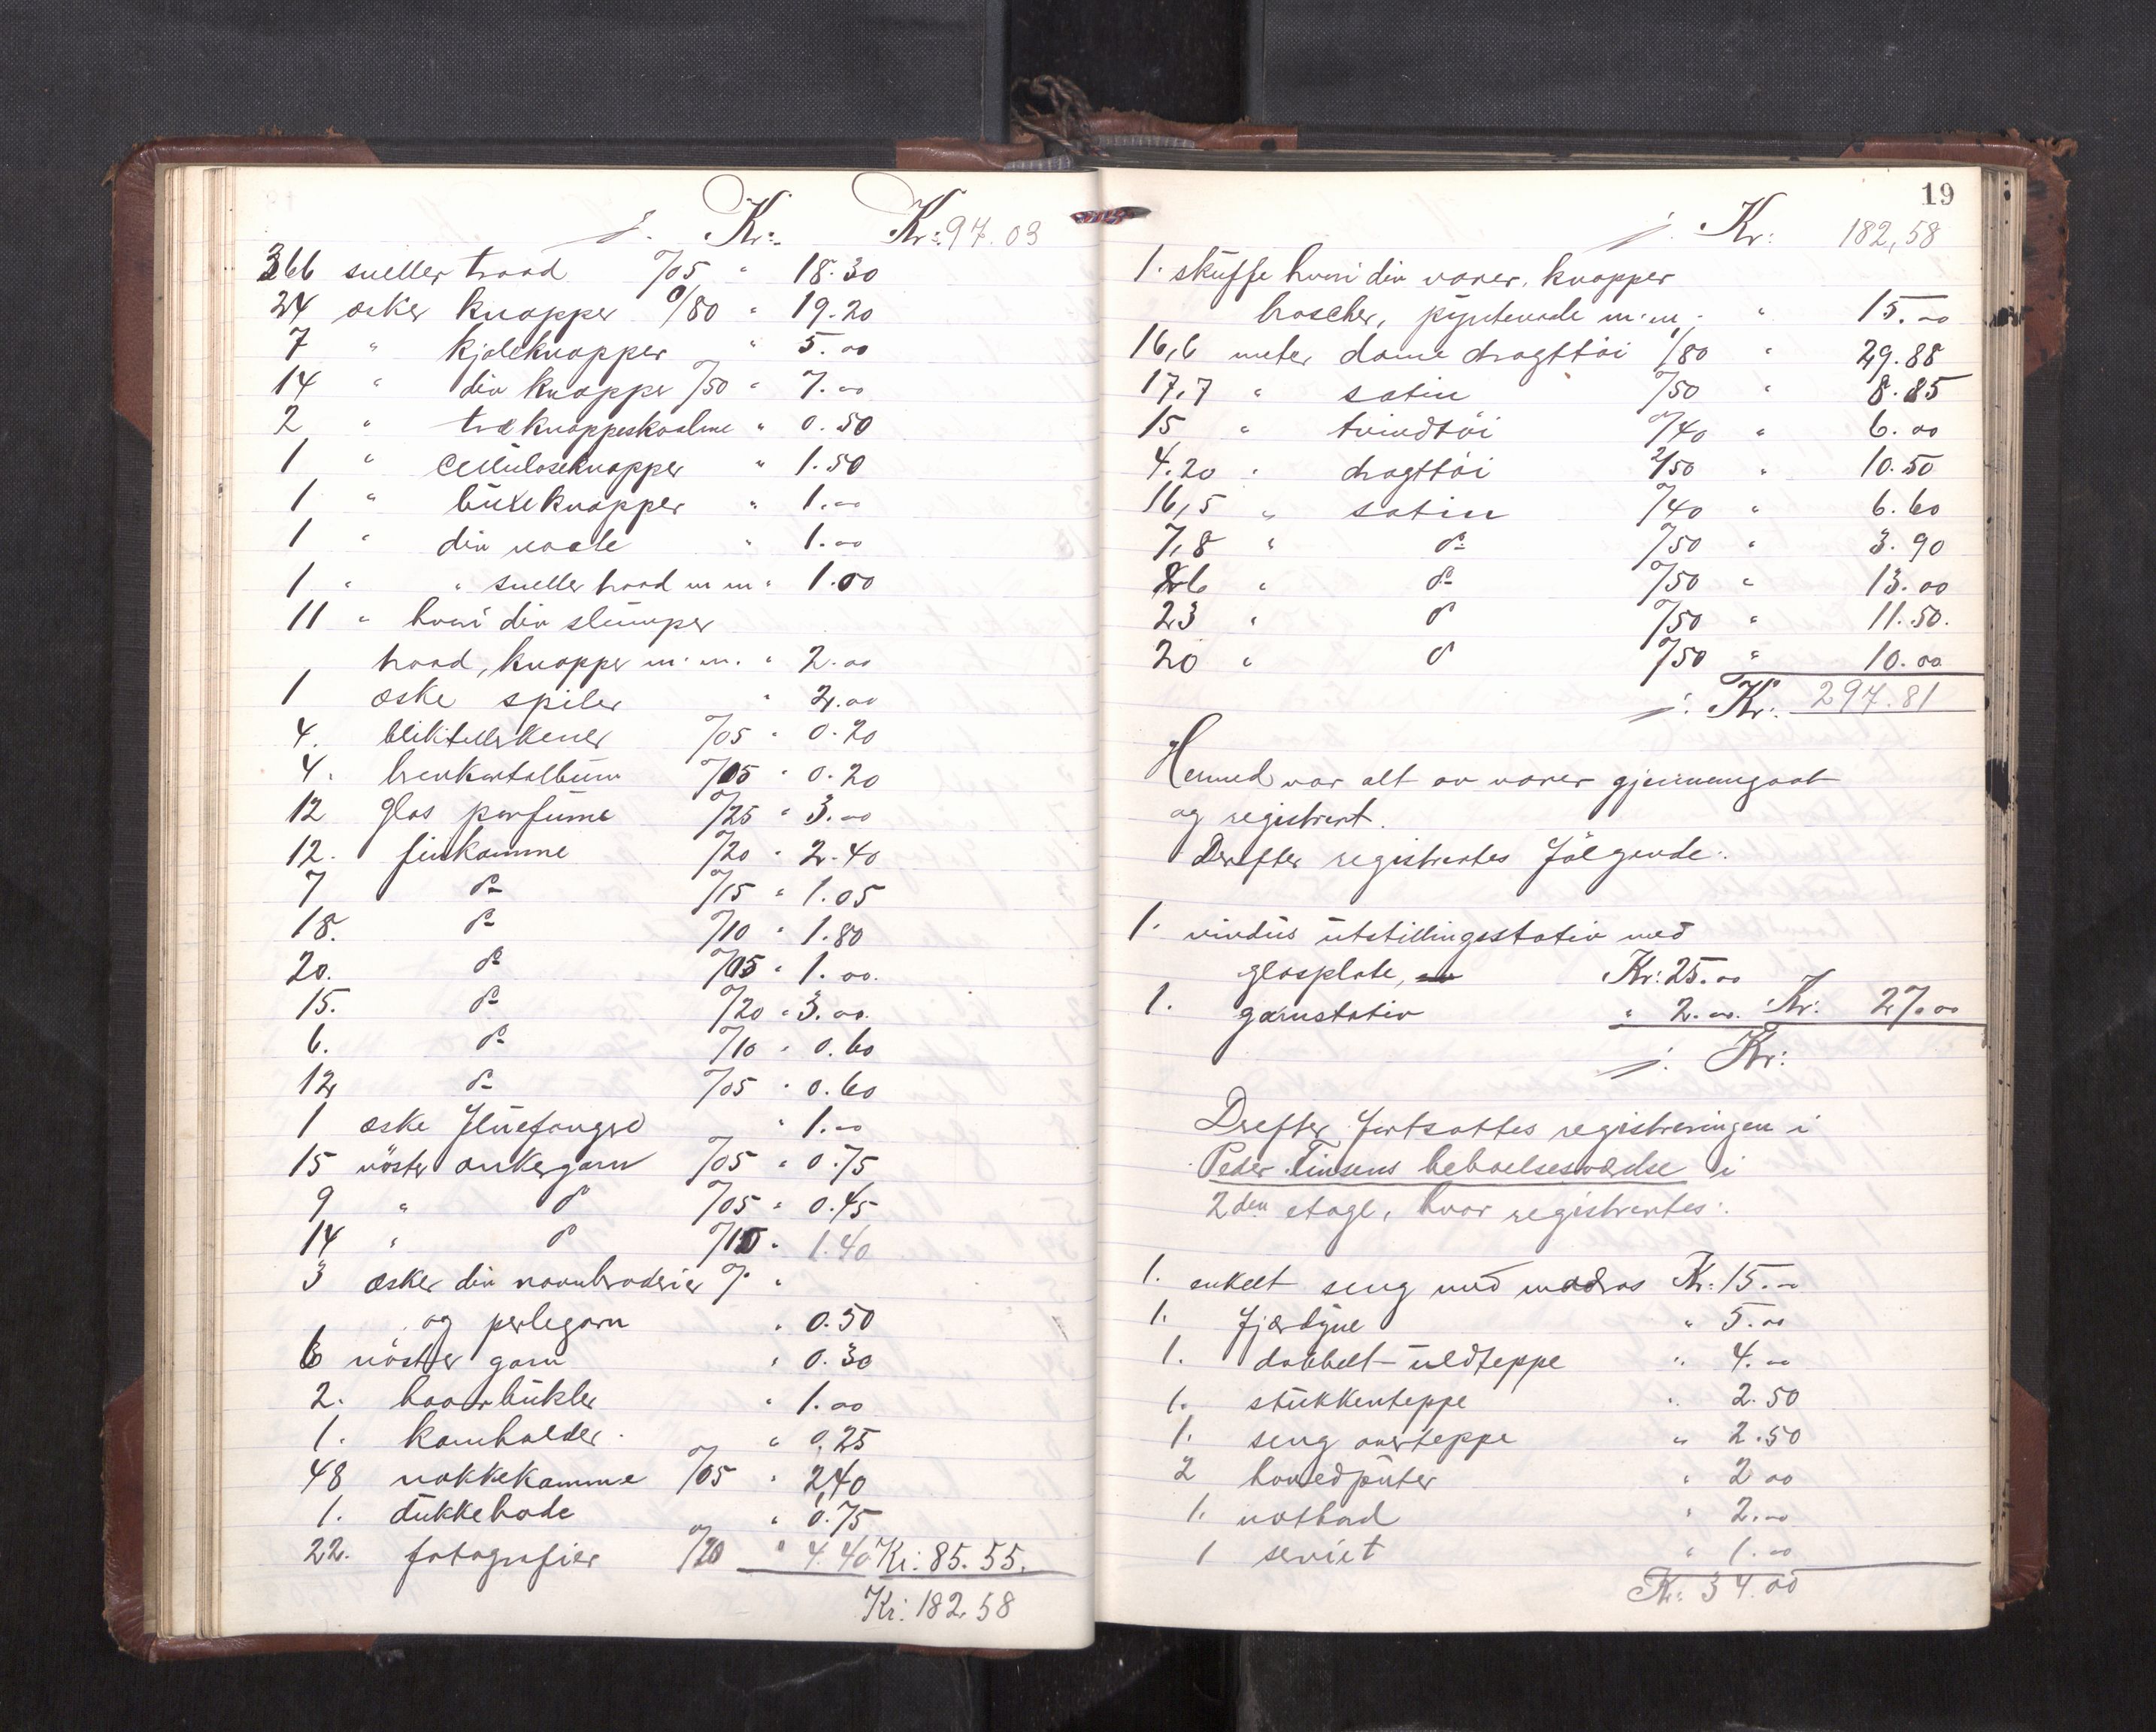 j. Kr: Kr: 97.03
366 sneller traad à/05 " 18.30
24 æsker knapper à/80 " 19.20
7 " kjoleknapper " 5.00
14 " div knapper à/50 " 7.00
2 " træknappeskaalme " 0.50
1 " Celluloseknapper " 1.50
1 " buxeknapper " 1.00
1 " div naale " 1.00
1 " " sneller traad m m " 1.00
11 " hvori div slumper
traad, knapper m.m. " 2.00
1 æske spiler " 2.00
4. bliktallerkener à/05 " 0.20
4. brevkortalbum à/05 " 0.20
12 glas parfume à/25 " 3.00
12. finkamme à/20 " 2.40
7 do à/15 " 1.05
18. do à/10 " 1.80
20. do à/05 " 1.00.
15. do à/20 " 3.00.
6. do à/10 " 0.60
12 do à/05 " 0.60
1 æske fluefangere " 1.00
15 nöster ankergarn à/05 " 0.75
9 " do à/05 " 0.45
14 " do à/10 " 1.40
3 æsker div navnbroderier à/. "
og perlegarn " 0.50
6 nöster garn " 0.30
2. haarbukler " 1.00
1. kamholder. " 0.25
48 nakkekamme à/05 " 2.40
1. dukkehode " 0.75
22. fotografier à/20 " 4.40 Kr: 85.55.
Kr: 182.58
19
j. Kr: 182,58
1. skuffe hvori div varer, knapper
broscher, pyntenaale m.m. " 15.00
16,6 meter dame dragttöi 1/80 " 29.88
17,7 " satin à/50 " 8.85
15 " tvindtöi à/40 " 6.00
4.20 " dragttöi 2/50 " 10.50
16,5 " satin à/40 " 6.60
7,8 " do à/50 " 3.90
26 " do à/50 " 13.00
23 " do à/50 " 11.50.
20 " do à/50 " 10.00
j. Kr: 297.81
Hermed var alt av varer gjennemgaat
og registrert.
Derefter registrertes fölgende:
1. vindus utstillingsstativ med
glasplate, Kr: 25.00
1. garnstativ " 2.00. Kr: 27.00
j. Kr:
Derefter fortsattes registreringen i
Peder Tinsens beboelsesværelse i
2den etage, hvor registrertes:
1. enkelt seng med madras Kr: 15.00
1. fjærdyne " 5.00
1. dobbelt uldteppe " 4.00
1. stukkenteppe " 2.50
1. seng overteppe " 2.50
2 hovedputer " 2.00
1. natbord " 2.00
1 serviet " 1.00
Kr: 34.00